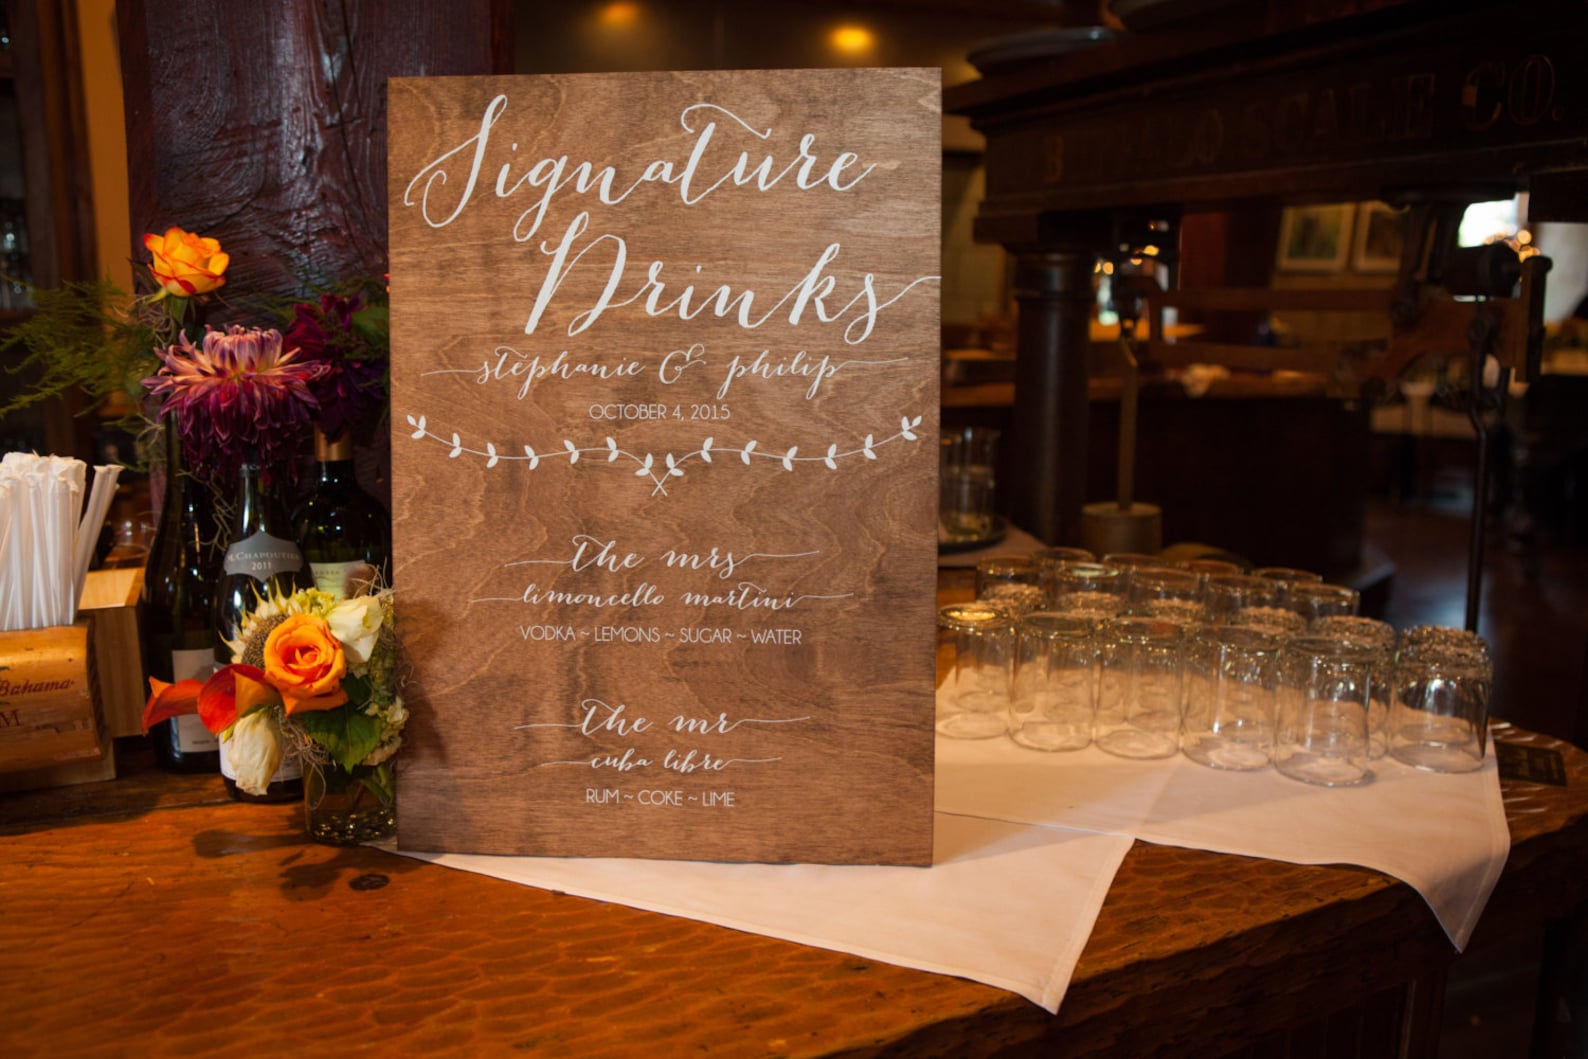 Signature
Drinks
stephanie & philip
OCTOBER 4, 2015
the mrs
limoncello martini
VODKA ~ LEMONS ~ SUGAR ~ WATER
the mr
cuba libre
RUM ~ COKE ~ LIME
M. CHAPOUTIER
2011
Bahama
SCALE CO.